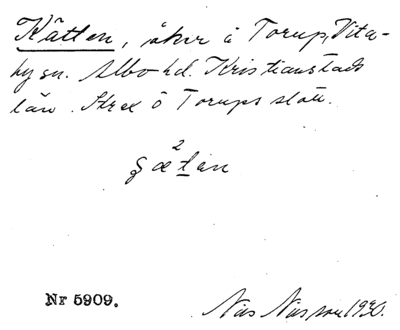 Kätten, åker å Torup, Vita-
by sn. Albo hd. Kristianstads
län. Strax ö Torups slott.
2
gætən
Nr 5909.
Nils Nilsson 1930.